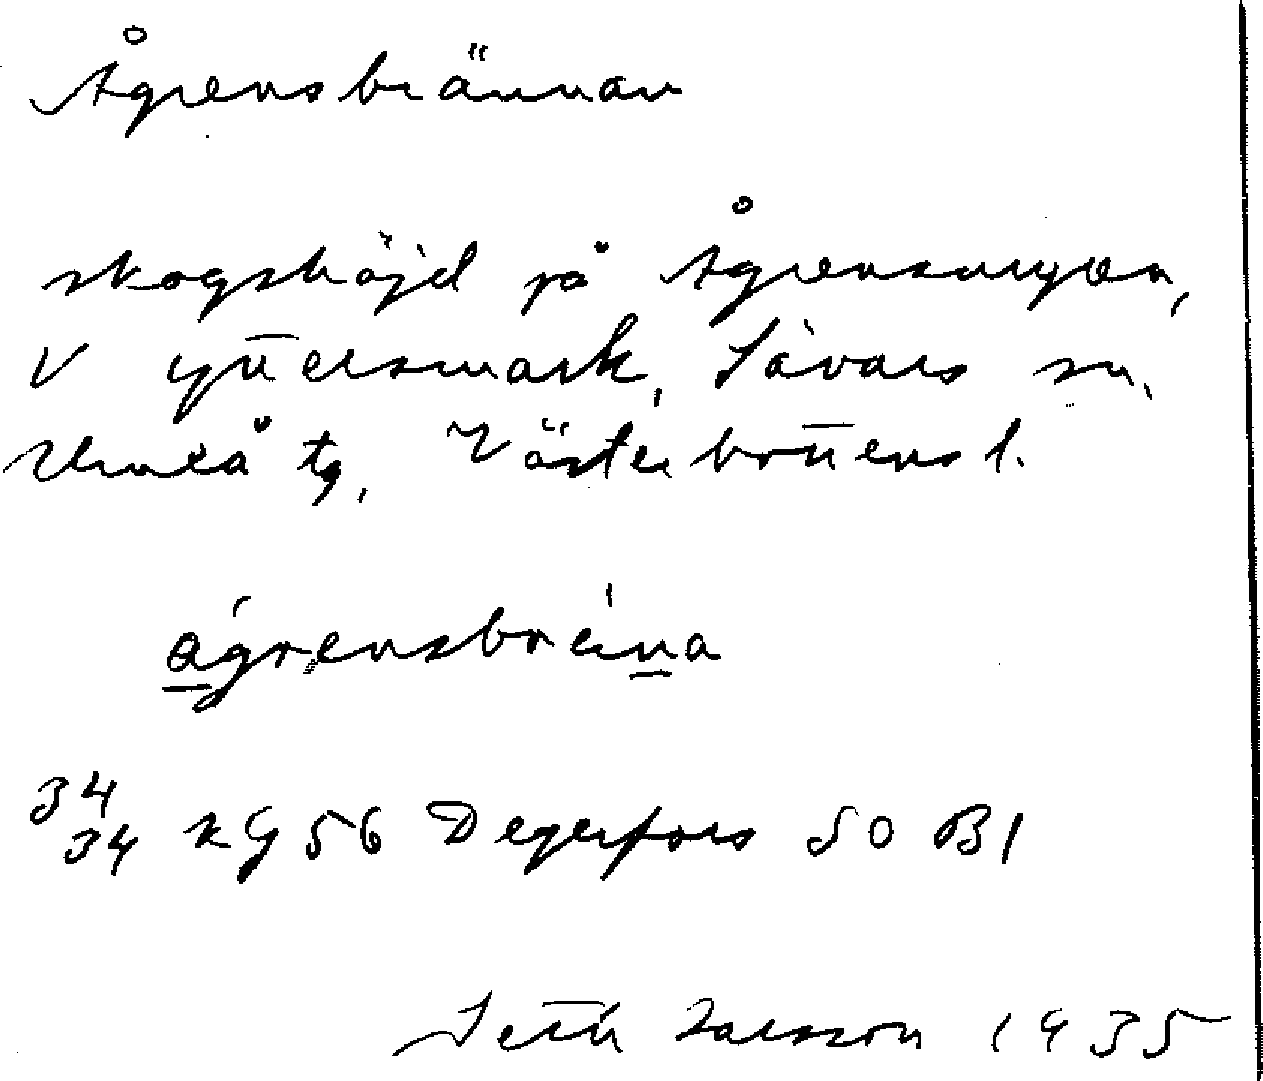 Ågrensbrännan
skogshöjd på Ågrensmyren,
V Yttersmark, Sävars sn,
Umeå tg, Västerbottens l.
ágrensbréina
34
34 KG 56 Degerfors SO B1
Seth Larsson 1935